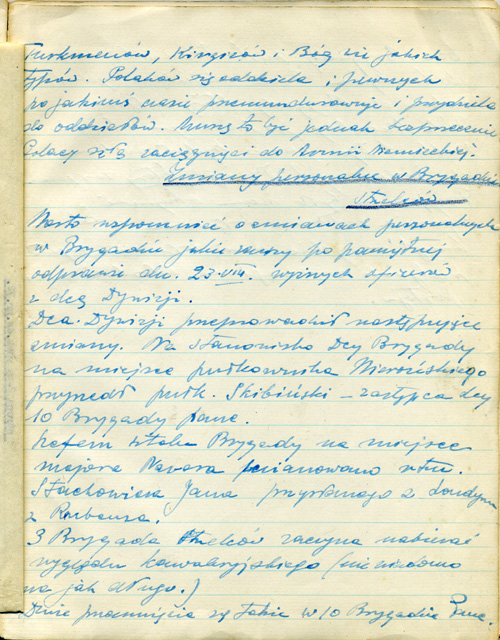 Turkmenów, Kirgizów i Bóg wie jakich
typów. Polaków się oddziela i pewnych
po jakimś czasie przemundurowuje i przydziela
do oddziałów. Muszą to być jednak bezsprzecznie
Polacy siłą zaciągnięci do Armii niemieckiej.
Zmiany personalne w Brygadzie
Strzelców
Warto wspomnieć o zmianach personalnych
w Brygadzie jakie zaszły po pamiętnej
odprawie dn. 23.VIII. wyższych oficerów
z dcą Dywizji.
Dca. Dywizji przeprowadził następujące
zmiany. Na stanowisko Dcy Brygady
na miejsce pułkownika Wierońskiego
przyszedł pułk. Skibiński – zastępca dcy
10 Brygady panc.
Szefem sztabu Brygady na miejsce
majora mianowano rtm.
Stachowicza Jana przysłanego z Londynu
z
3 Brygada Strzelców zaczyna nabierać
wyglądu kawaleryjskiego (nie wiadomo
na jak długo.)
Duże przesunięcia są także w 10 Brygadzie Panc.